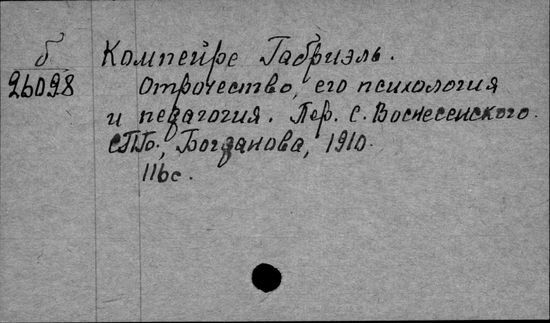 б
26028
Компейре Габриэль.
Отрочество, его психология
и педагогия. Пер. С. Воснесенского.
СПб., Богданова, 1910.
116с.